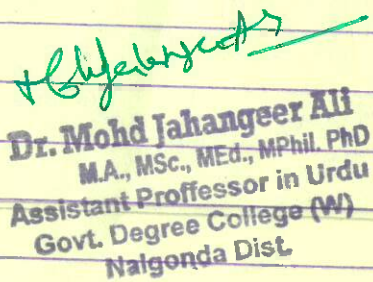 Dr. Mohd Jahangeer Ali
M.A., MSc., MEd., MPhil. PhD
Assistant Proffessor in Urdu
Govt. Degree College (W)
Nalgonda Dist.